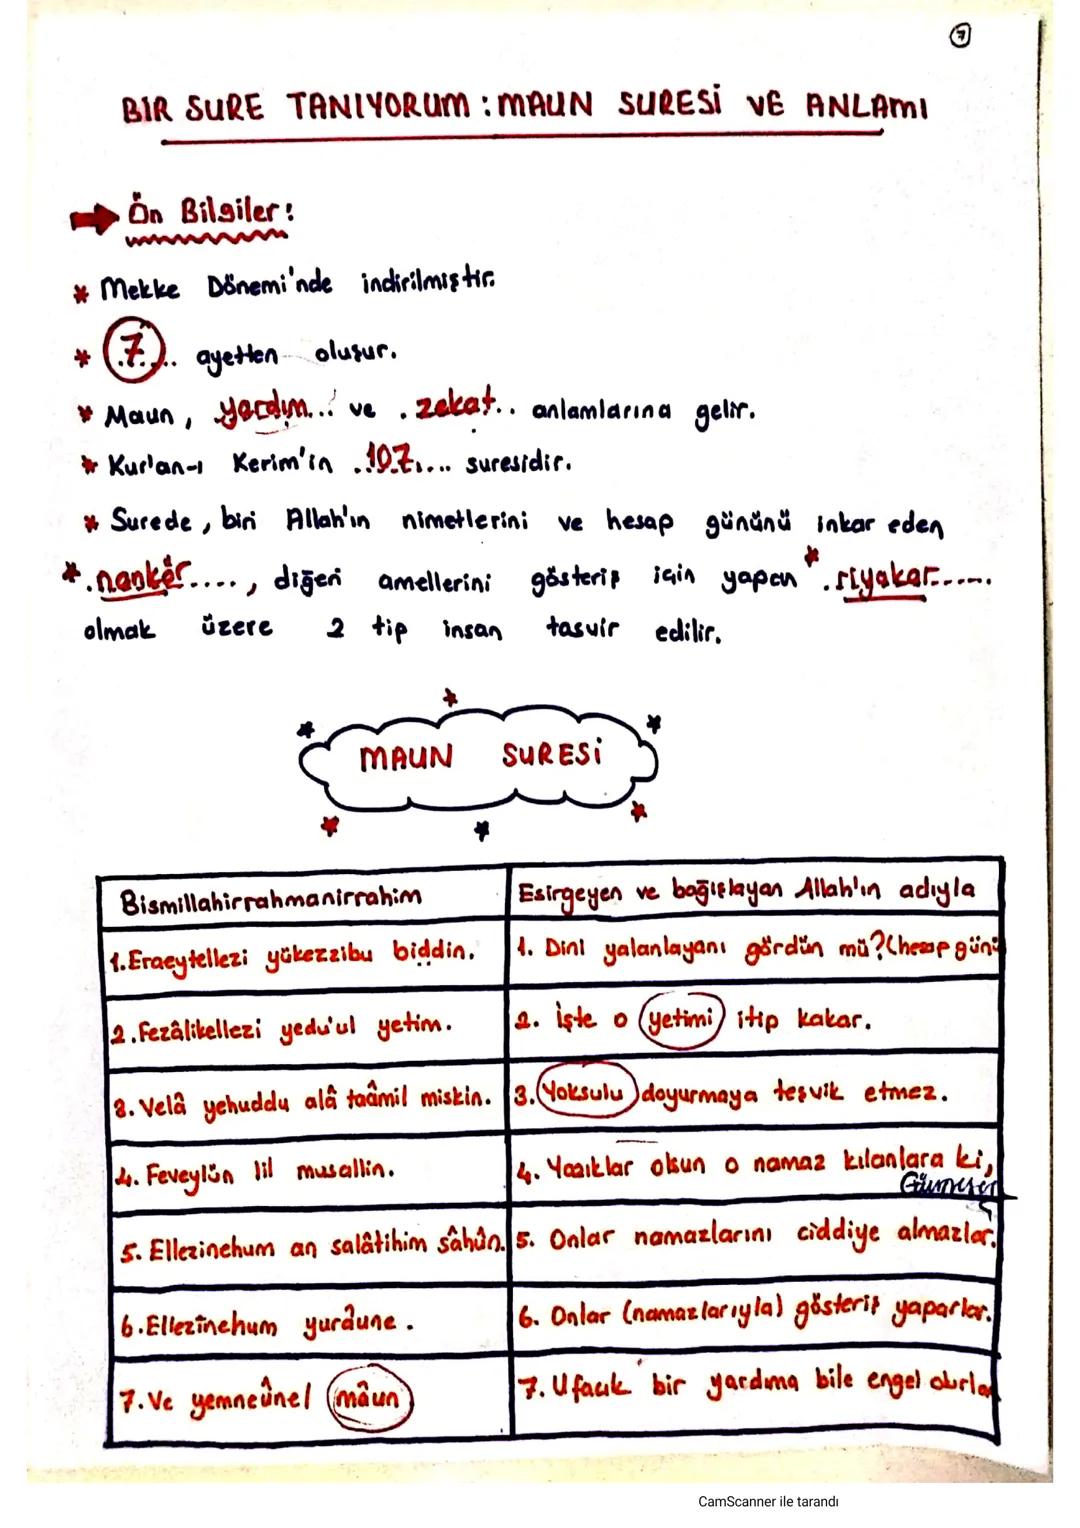 7
BIR SURE TANIYORUM : MAUN SURESİ VE ANLAMI
Ön Bilgiler:
* Mekke Dönemi'nde indirilmiştir.
* .7... ayetten oluşur.
* Maun, yardım... ve .zekat.. anlamlarına gelir.
* Kur'an-ı Kerim'in ..107.... suresidir.
* Surede, biri Allah'ın nimetlerini ve hesap gününü inkar eden
*.nankör...., diğeri amellerini gösteriş için yapan *.riyakar.....
olmak üzere 2 tip insan tasvir edilir.
MAUN SURESİ
Bismillahirrahmanirrahim
Esirgeyen ve bağışlayan Allah'ın adıyla
1.Eraeytellezi yükezzibu biddin.
1. Dini yalanlayanı gördün mü?(hesap günü
2.Fezâlikellezi yedu'ul yetim.
2. İşte o yetimi itip kakar.
3. Velâ yehuddu alâ taâmil miskin.
3. Yoksulu doyurmaya teşvik etmez.
4. Feveylün lil musallin.
4. Yazıklar olsun o namaz kılanlara ki,
5. Ellezinehum an salâtihim sâhûn.
5. Onlar namazlarını ciddiye almazlar.
6.Ellezînehum yurâune.
6. Onlar (namazlarıyla) gösteriş yaparlar.
7. Ve yemneûnel mâun
7. Ufacık bir yardıma bile engel olurlar
CamScanner ile tarandı